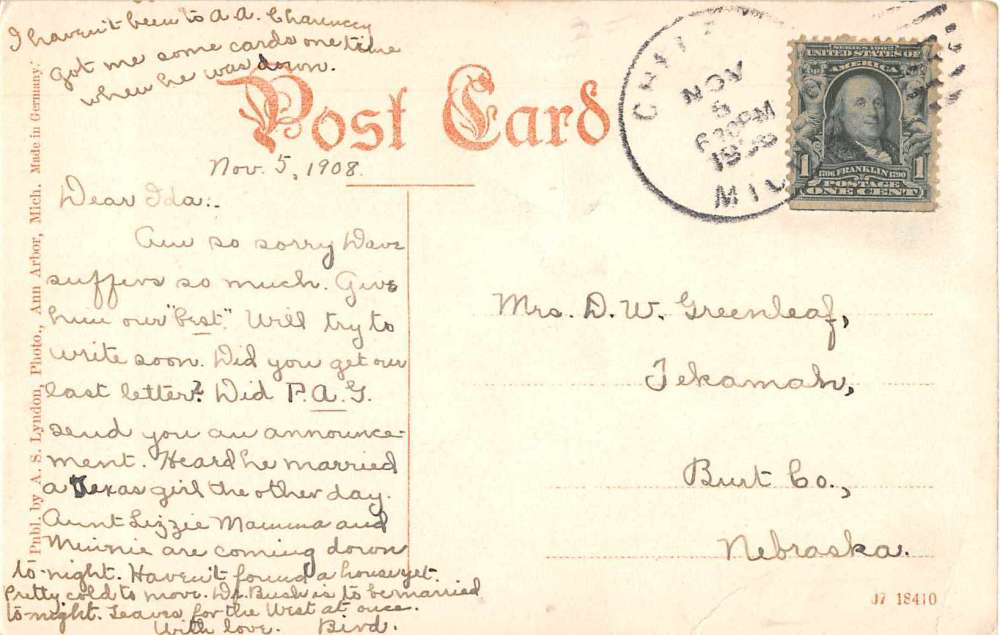 I haven't been to A.A. Chauncey
got me some cards one time
when he was down.
Post Card
Nov. 5, 1908.
Dear Ida:.
Am so sorry Dave
suffers so much. Give
him our "best". Will try to
write soon. Did you get our
last letter? Did P.A.G.
send you an announce-
ment. Heard he married
a Texas girl the other day.
Aunt Lizzie Mamma and
Minnie are coming down
to-night. Haven't found a house yet.
Pretty cold to move. Dr. Bush is to be married
to-night. Leaves for the West at once.
With love. Bird.
Publ. by A. S. Lyndon, Photo., Ann Arbor, Mich. Made in Germany.
NOV
5
630PM
1908
MICH
SERIES 1902
UNITED STATES OF
AMERICA
1706 FRANKLIN 1790
1 POSTAGE 1
ONE CENT
Mrs. D. W. Greenleaf,
Tekamah,
Burt Co.,
Nebraska.
J7 18410